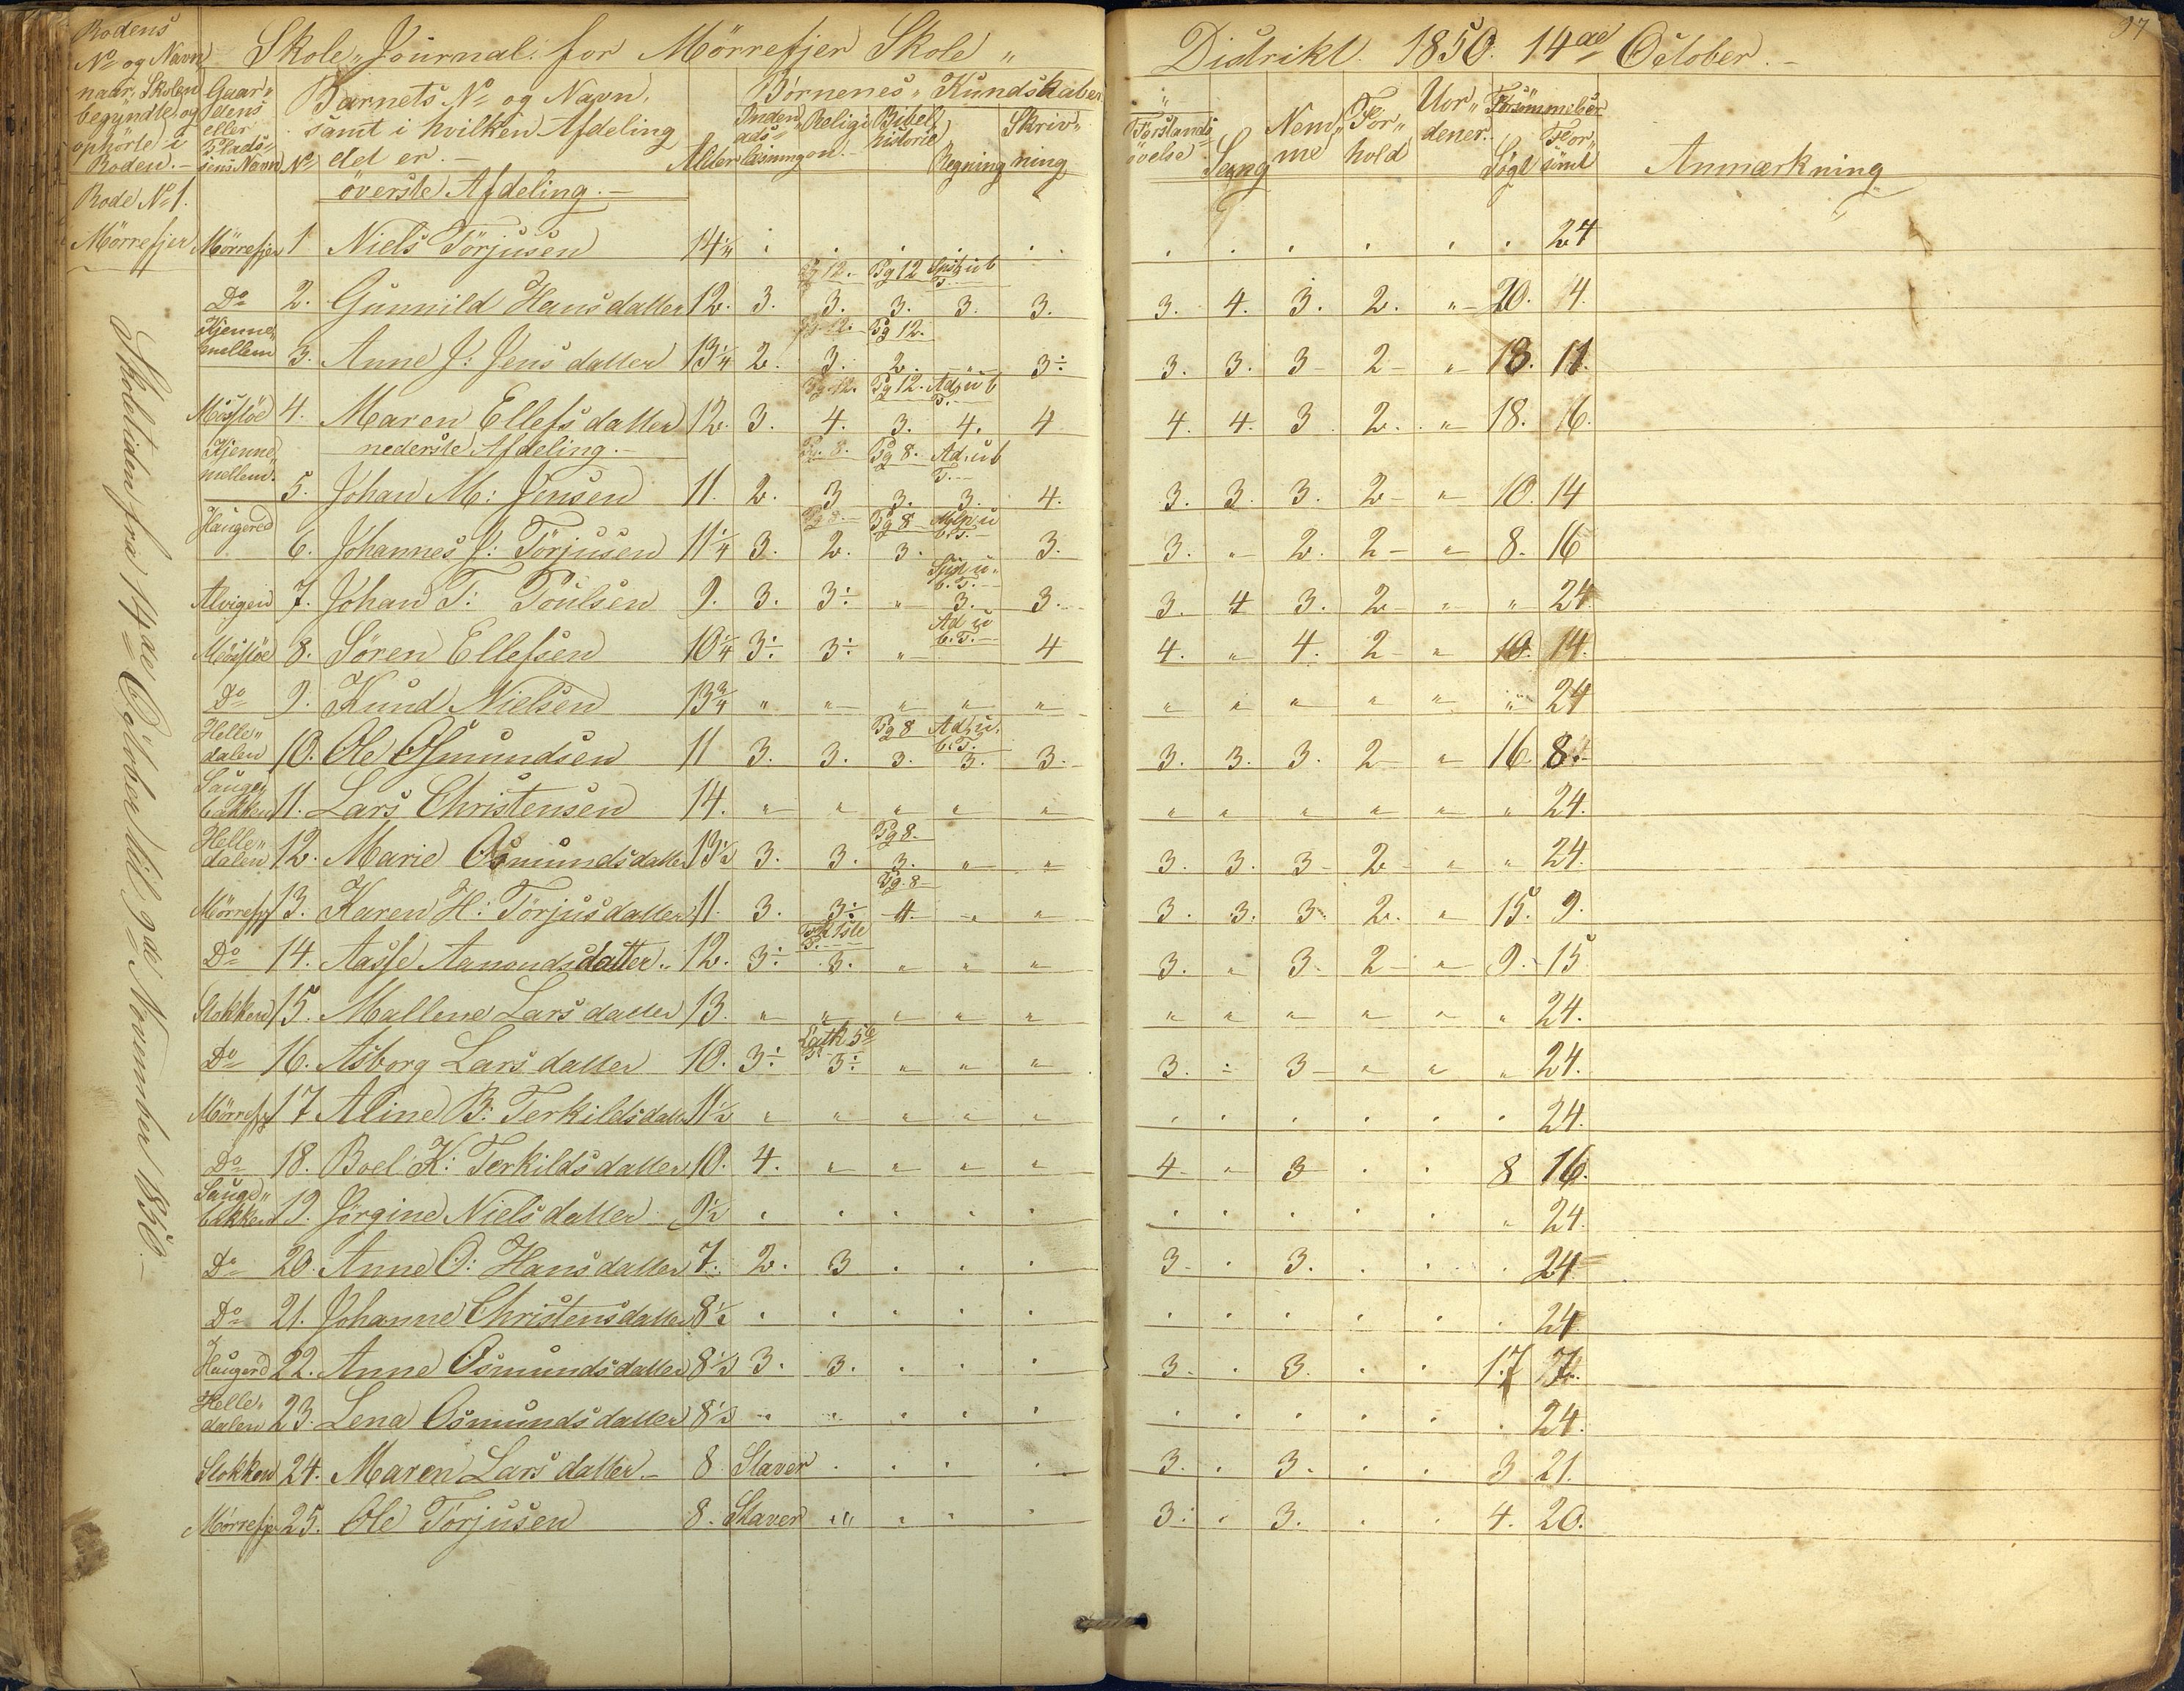 97
Skole-Journal for Mörrefjer Skole " Distrikt. 1850. 14de October.-
Rodens No og Navn naar Skolen begyndte og ophörte i Roden.-
Gaar"dens eller Plads"sens Navn
No
Barnets No og Navn, samt i hvilken Afdeling det er.-
Alder
Börnenes Kundskaber
Inden"ads"læsning Religion.- Bibelhistorie Regning Skriv"ning
Forstands"övelse Sang Nem"me For"hold Uor"dener. Forsömmelser Sögt For"sömt Anmærkning
Rode No 1.
Mörrefjer
överste Afdeling.-
Mörrefjer 1 Niels Törjusen 14 1/4 . . . . . . . . . . . 24
Pg 12.- Pg 12
Do 2. Gunnild Hansdatter 12. 3. 3. 3. 3. 3. 3. 4. 3. 2. " 20. 4.
Pg. 12. Pg 12.
Kjenne"mellem 3. Anne J: Jensdatter 13 1/4 2. 3. 2. " 3÷ 3. 3. 3 2 " 13. 11.
Pg. 12. Pg 12. Ad. u b T.-
4. Maren Ellefsdatter 12. 3. 4. 3. 4. 4 4. 4. 3 2. " 18. 6.
nederste Afdeling.-
Pg. 8. Pg 8. Ad. u b T.-
Kjenne"mellem. 5. Johan M: Jensen 11. 2. 3 3. 3. 4. 3. 3. 3. 2 " 10. 14
Pg 8.- Pg 8
Haugered 6. Johannes J: Törjusen 11 1/4 3. 2. 3. 3. 3. " 2. 2 " 8. 16
Alvigen 7. Johan T: Poulsen 9. 3. 3÷ " 3. 3. 3. 4 3. 2 " " 24
Ad u b. T.-
8. Sören Ellefsen 10 1/4 3÷ 3÷ " 4 4. " 4. 2 " 10. 14.
Do 9. Knud Nielsen 13 3/4 " " " " " " " " " " " 24
Pg 8 Ad. u. b. T.
Helle"dalen 10. Ole Osmundsen 11 3. 3. 3. 3. 3. 3. 3. 3. 2 " 16 8.
Sauge"bakken 11. Lars Christensen 14. " " " " " " " " " " " 24.
Pg 8.
Helle"dalen 12. Marie Osmundsdatter 13 1/2 3. 3. 3. " " 3. 3. 3 2 " " 24.
Pg. 8
Mörrefjr 13. Karen H: Törjusdatter 11. 3. 3÷ 4. " " 3. 3. 3 2. " 15. 9.
Do 14. Aasse Aamondsdatter.. 12. 3÷ 3. " " " 3. " 3 2 " 9. 15
Stokken 15. Mallene Larsdatter 13. " " " " " " " " " " " 24.
Do 16. Asborg Larsdatter 10. 3÷ 3÷ " " " 3. ÷ 3 " " " 24.
Mörrefjr 17 Aline B: Terkildsdatter 11 1/2 " " " " " . . . . . . 24.
Do 18. Boel K: Terkildsdatter 10. 4. " " " " 4 " 3 . . 8 16.
Sauge"bakken 19. Jörgine Nielsdatter 9 1/2 . . . . . . . . . . " 24.
Do 20. Anne O: Hansdatter 7. 2. 3 . . . 3 . 3. . . . 24
Do 21. Johanne Christensdatter 8 1/2 . . . . . . . . . . . 24
Haugerd 22. Anne Osmundsdatter 8 1/2 3. 3. . . . 3. . 3. . . 17 7.
Helle"dalen 23. Lena Osmundsdatter 8 1/2 " " . . . . . . . . . 24.
Stokken 24. Maren Larsdatter.- 8 Staver . . . . 3. . 3. . . 3 21.
Mörrefjr 25. Ole Törjusen 8. Staver " . . . 3. . 3. . . 4. 20.
Skoletiden fra 14de October til 9de November 1850.-